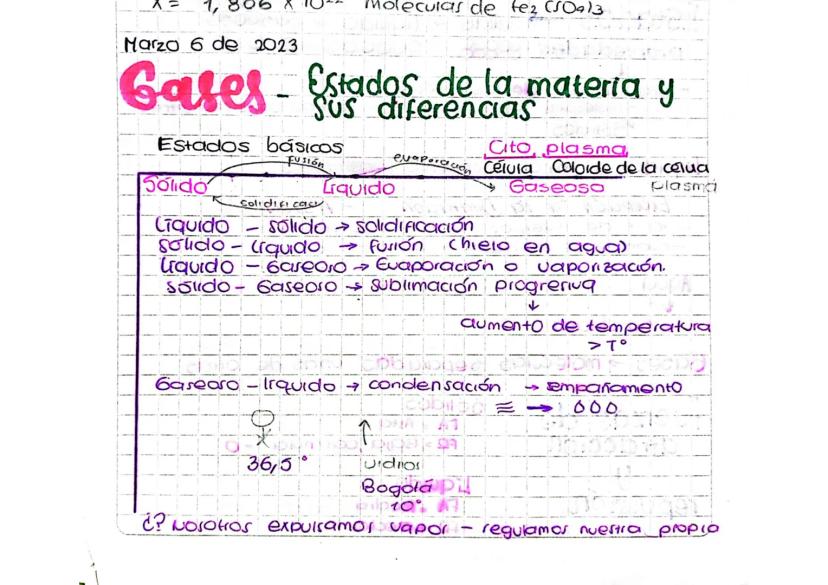 x = 1,806 x 10²² moléculas de Fe2(SO4)3
Marzo 6 de 2023
Gases - Estados de la materia y
sus diferencias
Estados básicos
Cito plasma
fusión
evaporación
Célula Coloide de la celula
Sólido Líquido Gaseoso plasma
solidificaci
Líquido - sólido → solidificación
sólido - líquido → fusión (hielo en agua)
líquido - Gaseoso → Evaporación o vaporización.
sólido - Gaseoso → sublimación progresiva
↓
aumento de temperatura
> T°
Gaseoso - líquido → condensación → empañamento
≡ → 000
36,5° vidrios
Bogotá
10°
¿? Nosotros expulsamos vapor - regulamos nuestra propia